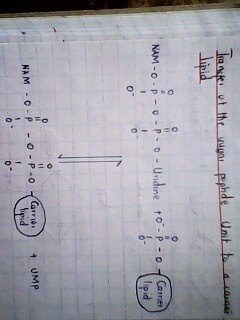 Transfer of the sugar peptide unit to a carrier
lipid
O O
NAM - O - P - O - P - O - Uridine + O⁻ - P - O - Carrier lipid
O⁻ O⁻ O⁻
O O
NAM - O - P - O - P - O - Carrier lipid + UMP
O⁻ O⁻